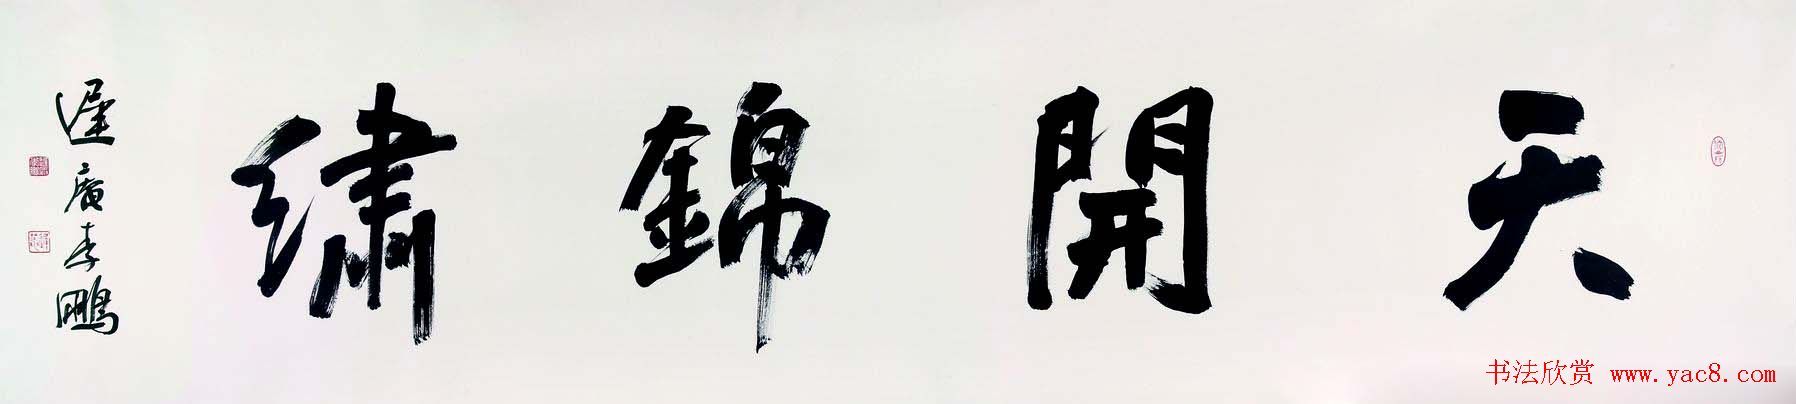 天開錦繡
遲廣李鵬
书法欣赏 www.yac8.com